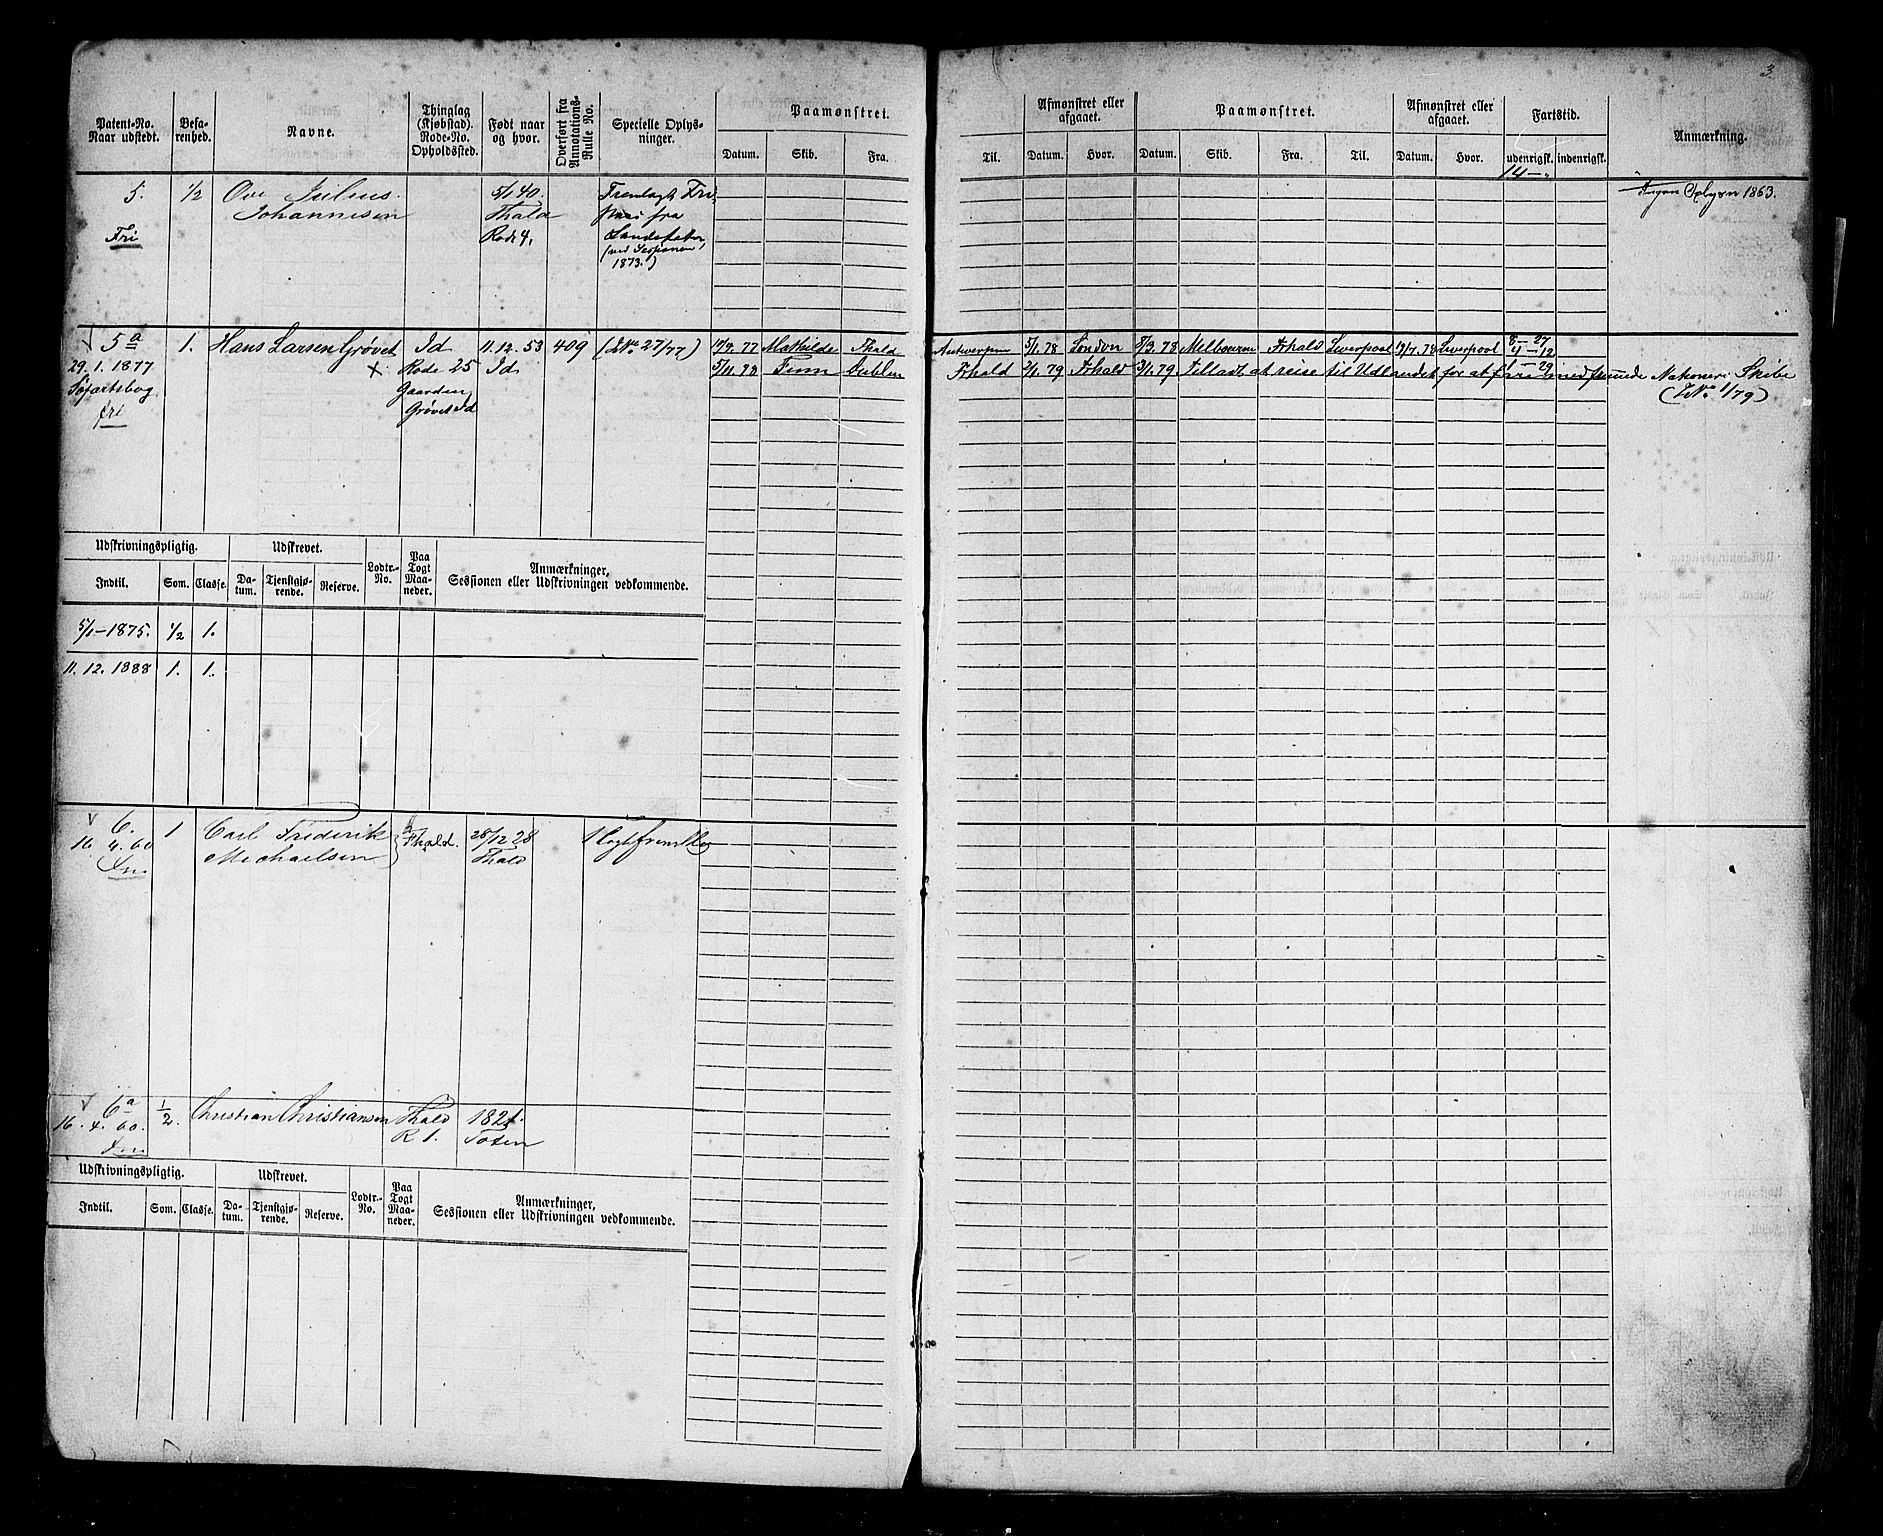 3.
Patent-No. Naar udstedt.
Befarenhed.
Navne.
Thinglag (Kjøbstad). Rode-No. Opholdssted.
Født naar og hvor.
Overført fra Annotations-Rulle No.
Specielle Oplysninger.
Paamønstret.
Datum. Skib. Fra.
Til.
Afmønstret eller afgaaet.
Datum. Hvor.
Paamønstret.
Datum. Skib. Fra. Til.
Afmønstret eller afgaaet.
Datum. Hvor.
Fartstid.
udenrigsk. indenrigsk.
Anmærkning.
14 —
5. ½ Ove Julius 5/1 40.
Johannesen Fhald
Fri Rode 4,
Fremlagt Fri-
pas fra
(ved Sessionen
1873.)
1863.
5a 1. Hans Larsen Grøvet Id 11.12.53 409 (JNo 27/77) 17/9.77 Mathilde Fhald Antwerpen 5/1.78 London 8/3.78 Melbourne Frhald Liverpool 19/7.78 Liverpool 8 — 27
4 — 12
29.1.1877 × Rode 25 Id 5/11.78 Finn Dublin Frhald 2/1.79 Frhald 3/1.79. Tilladt at reise til Udlandet for at fare med fremmede Nationers Skibe
1 — 29
Søfartsbog Gaarden (JNo 1/79)
fri Grøvet Id
Udskrivningspligtig. Udskrevet. Lodtr.-No. Paa Togt Maaneder. Anmærkninger, Sessionen eller Udskrivningen vedkommende.
Indtil. Som. Classe. Datum. Tjenstgjørende. Reserve.
5/1 – 1875. ½ 1.
11.12.1888 1. 1.
6. 1 Carl Frederik Fhald. 28/12 28
16 4.60 Michaelsen Fhald
6a ½. Christian Christiansen Fhald 182
16.4.60. R 1. Toten
Udskrivningspligtig. Udskrevet. Lodtr.-No. Paa Togt Maaneder. Anmærkninger, Sessionen eller Udskrivningen vedkommende.
Indtil. Som. Classe. Datum. Tjenstgjørende. Reserve.